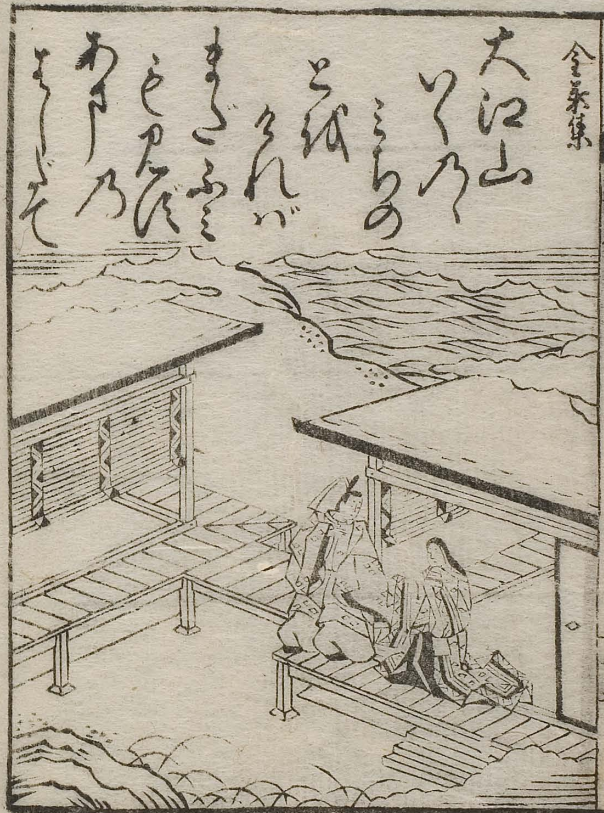 金葉集
大江山
いく乃ゝ
みちの
と越
ければ
まだふみ
も見ず
あまの
はしだて